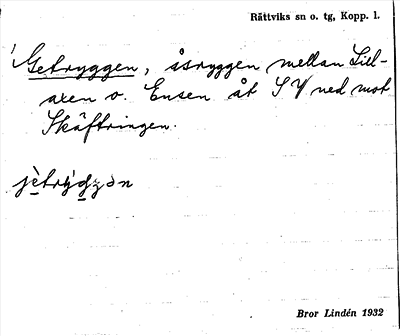 Rättviks sn o. tg, Kopp. l.
Getryggen, åsryggen mellan Lill-
axen o. Ensen åt SV ned mot
Skäftringen.
jètrýgʒən
Bror Lindén 1932